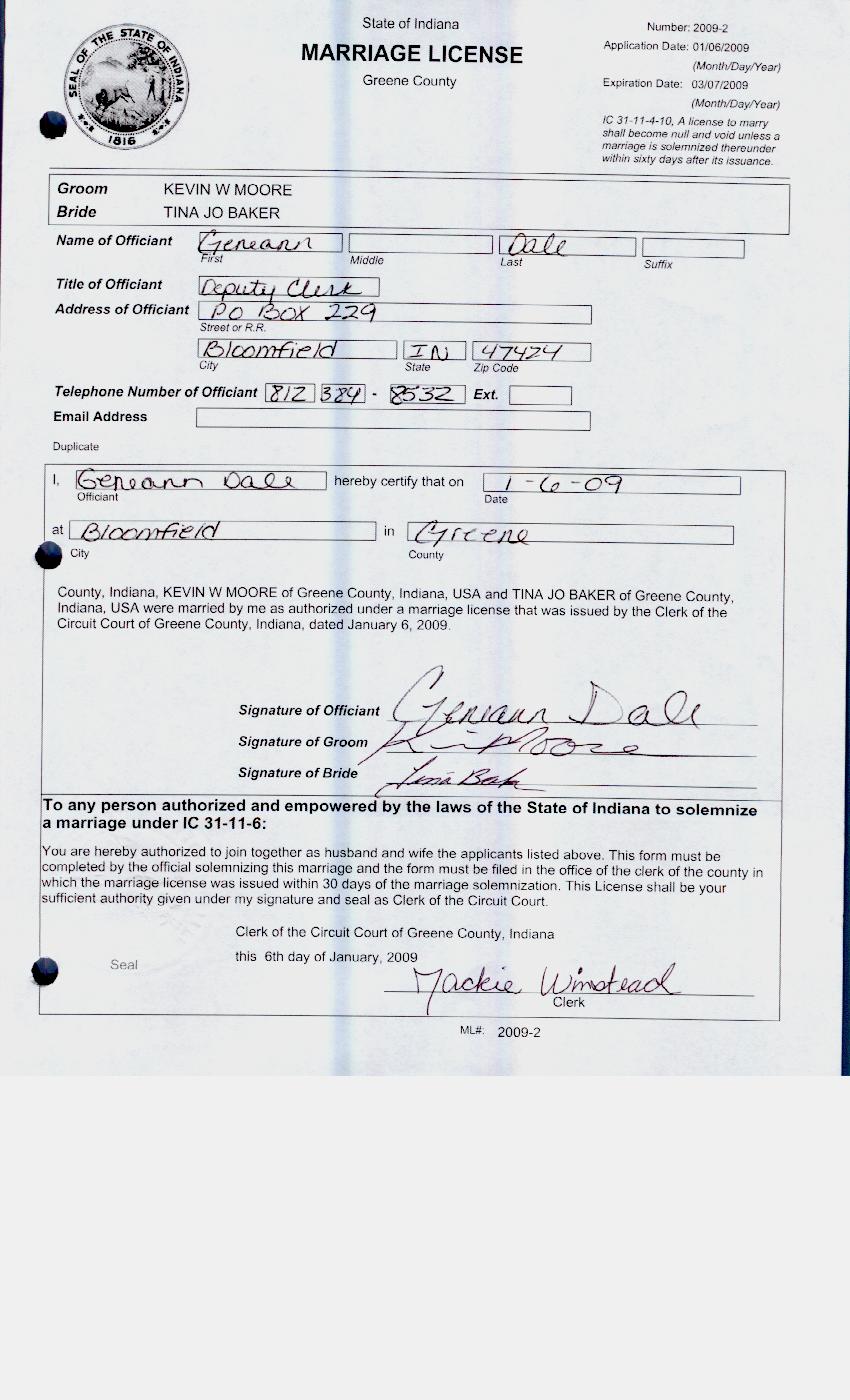 State of Indiana
MARRIAGE LICENSE
Greene County
Number: 2009-2
Application Date: 01/06/2009
(Month/Day/Year)
Expiration Date: 03/07/2009
(Month/Day/Year)
IC 31-11-4-10, A license to marry
shall become null and void unless a
marriage is solemnized thereunder
within sixty days after its issuance.
SEAL OF THE STATE OF INDIANA
1816
Groom KEVIN W MOORE
Bride TINA JO BAKER
Name of Officiant Geneann Dale
First Middle Last Suffix
Title of Officiant Deputy Clerk
Address of Officiant PO BOX 229
Street or R.R.
Bloomfield IN 47424
City State Zip Code
Telephone Number of Officiant 812 384 - 8532 Ext.
Email Address
Duplicate
I, Geneann Dale hereby certify that on 1-6-09
Officiant Date
at Bloomfield in Greene
City County
County, Indiana, KEVIN W MOORE of Greene County, Indiana, USA and TINA JO BAKER of Greene County,
Indiana, USA were married by me as authorized under a marriage license that was issued by the Clerk of the
Circuit Court of Greene County, Indiana, dated January 6, 2009.
Signature of Officiant Geneann Dale
Signature of Groom Kevin Moore
Signature of Bride Tina Baker
To any person authorized and empowered by the laws of the State of Indiana to solemnize
a marriage under IC 31-11-6:
You are hereby authorized to join together as husband and wife the applicants listed above. This form must be
completed by the official solemnizing this marriage and the form must be filed in the office of the clerk of the county in
which the marriage license was issued within 30 days of the marriage solemnization. This License shall be your
sufficient authority given under my signature and seal as Clerk of the Circuit Court.
Clerk of the Circuit Court of Greene County, Indiana
this 6th day of January, 2009
Seal
Mackie Winstead
Clerk
ML#: 2009-2